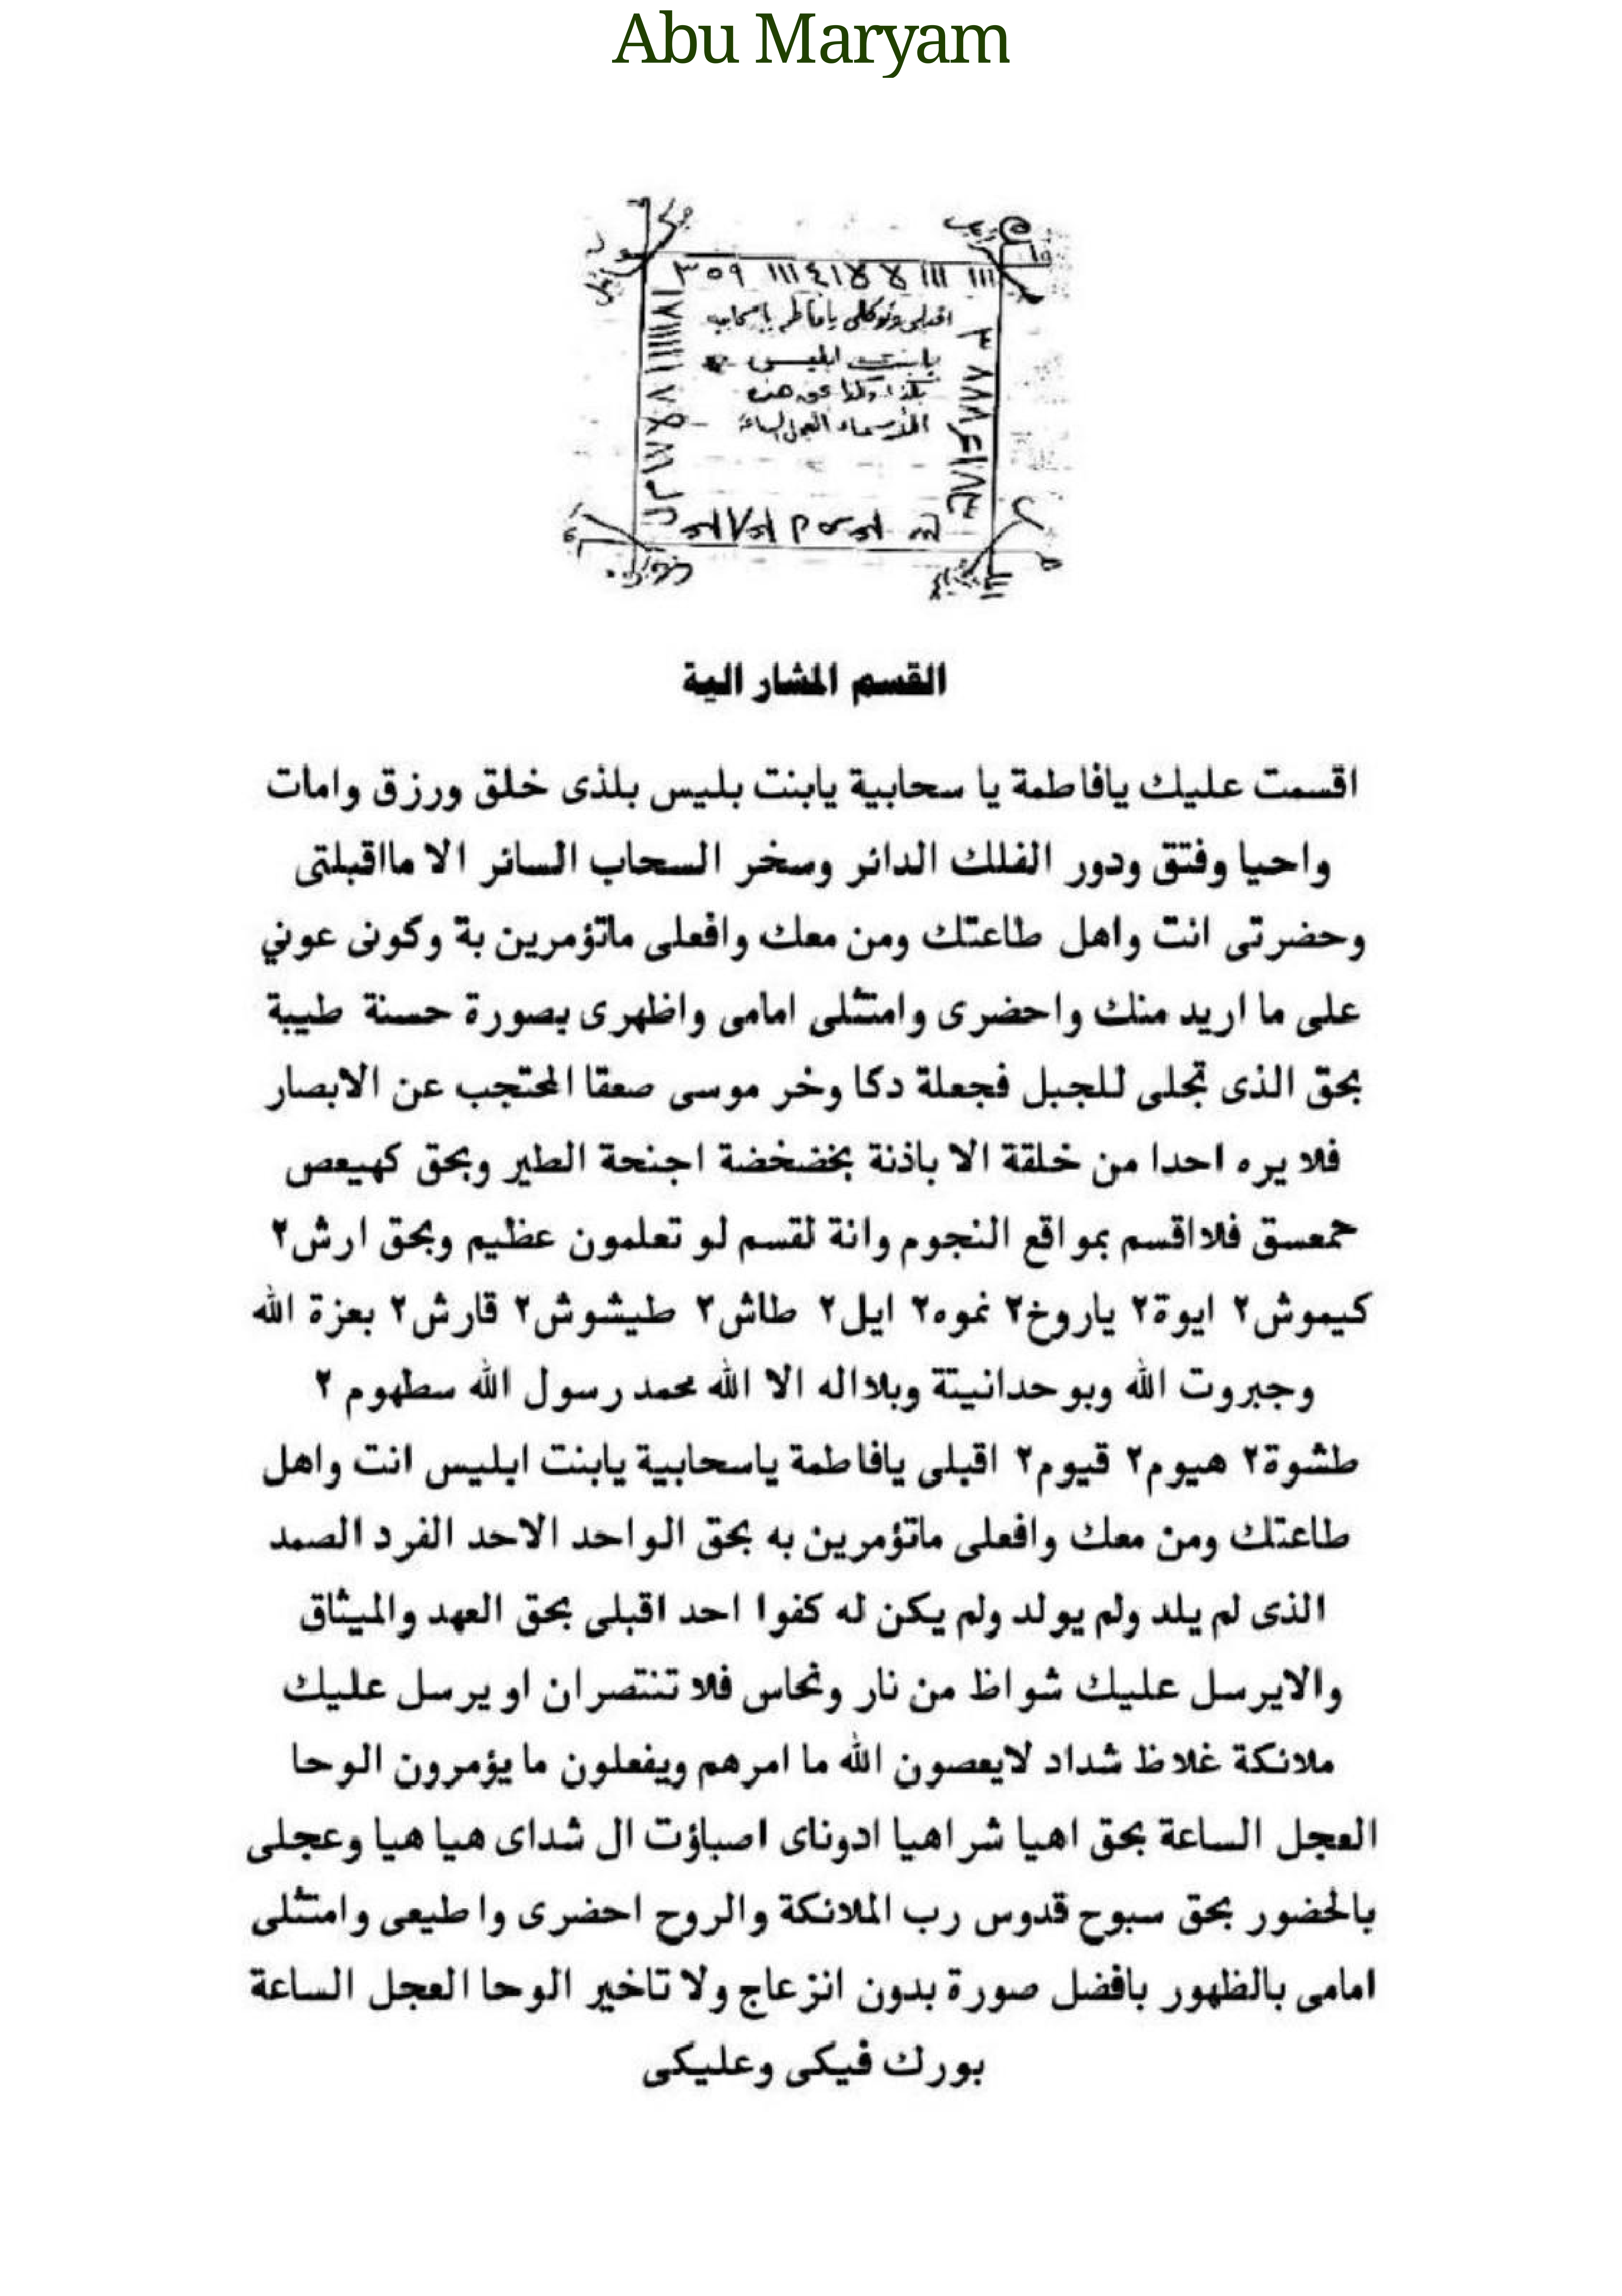 Abu Maryam
٣٥٩ ١١١ ١٤
يا بنت ابليس
بكذا وكذا بحق هذه
الأسماء العجل الساعة
القسم المشار الية
اقسمت عليك يافاطمة يا سحابية يابنت بليس بلذى خلق ورزق وامات
واحيا وفتق ودور الفلك الدائر وسخر السحاب السائر الا مااقبلتى
وحضرتى انت واهل طاعتك ومن معك وافعلى ماتؤمرين بة وكونى عوني
على ما اريد منك واحضرى وامتثلى امامى واظهرى بصورة حسنة طيبة
بحق الذى تجلى للجبل فجعلة دكا وخر موسى صعقا المحتجب عن الابصار
فلا يره احدا من خلقة الا باذنة بخضخضة اجنحة الطير وبحق كهيعص
حمعسق فلااقسم بمواقع النجوم وانة لقسم لو تعلمون عظيم وبحق ارش٢
كيموش٢ ايوة٢ ياروخ٢ نموه٢ ايل٢ طاش٢ طيشوش٢ قارش٢ بعزة الله
وجبروت الله وبوحدانيتة وبلااله الا الله محمد رسول الله سطهوم ٢
طشوة٢ هيوم٢ قيوم٢ اقبلى يافاطمة ياسحابية يابنت ابليس انت واهل
طاعتك ومن معك وافعلى ماتؤمرين به بحق الواحد الاحد الفرد الصمد
الذى لم يلد ولم يولد ولم يكن له كفوا احد اقبلى بحق العهد والميثاق
والايرسل عليك شواظ من نار ونحاس فلا تنتصران او يرسل عليك
ملائكة غلاظ شداد لايعصون الله ما امرهم ويفعلون ما يؤمرون الوحا
العجل الساعة بحق اهيا شراهيا ادوناى اصباؤت ال شداى هيا هيا وعجلى
بالحضور بحق سبوح قدوس رب الملائكة والروح احضرى واطيعى وامتثلى
امامى بالظهور بافضل صورة بدون انزعاج ولا تاخير الوحا العجل الساعة
بورك فيكى وعليكى